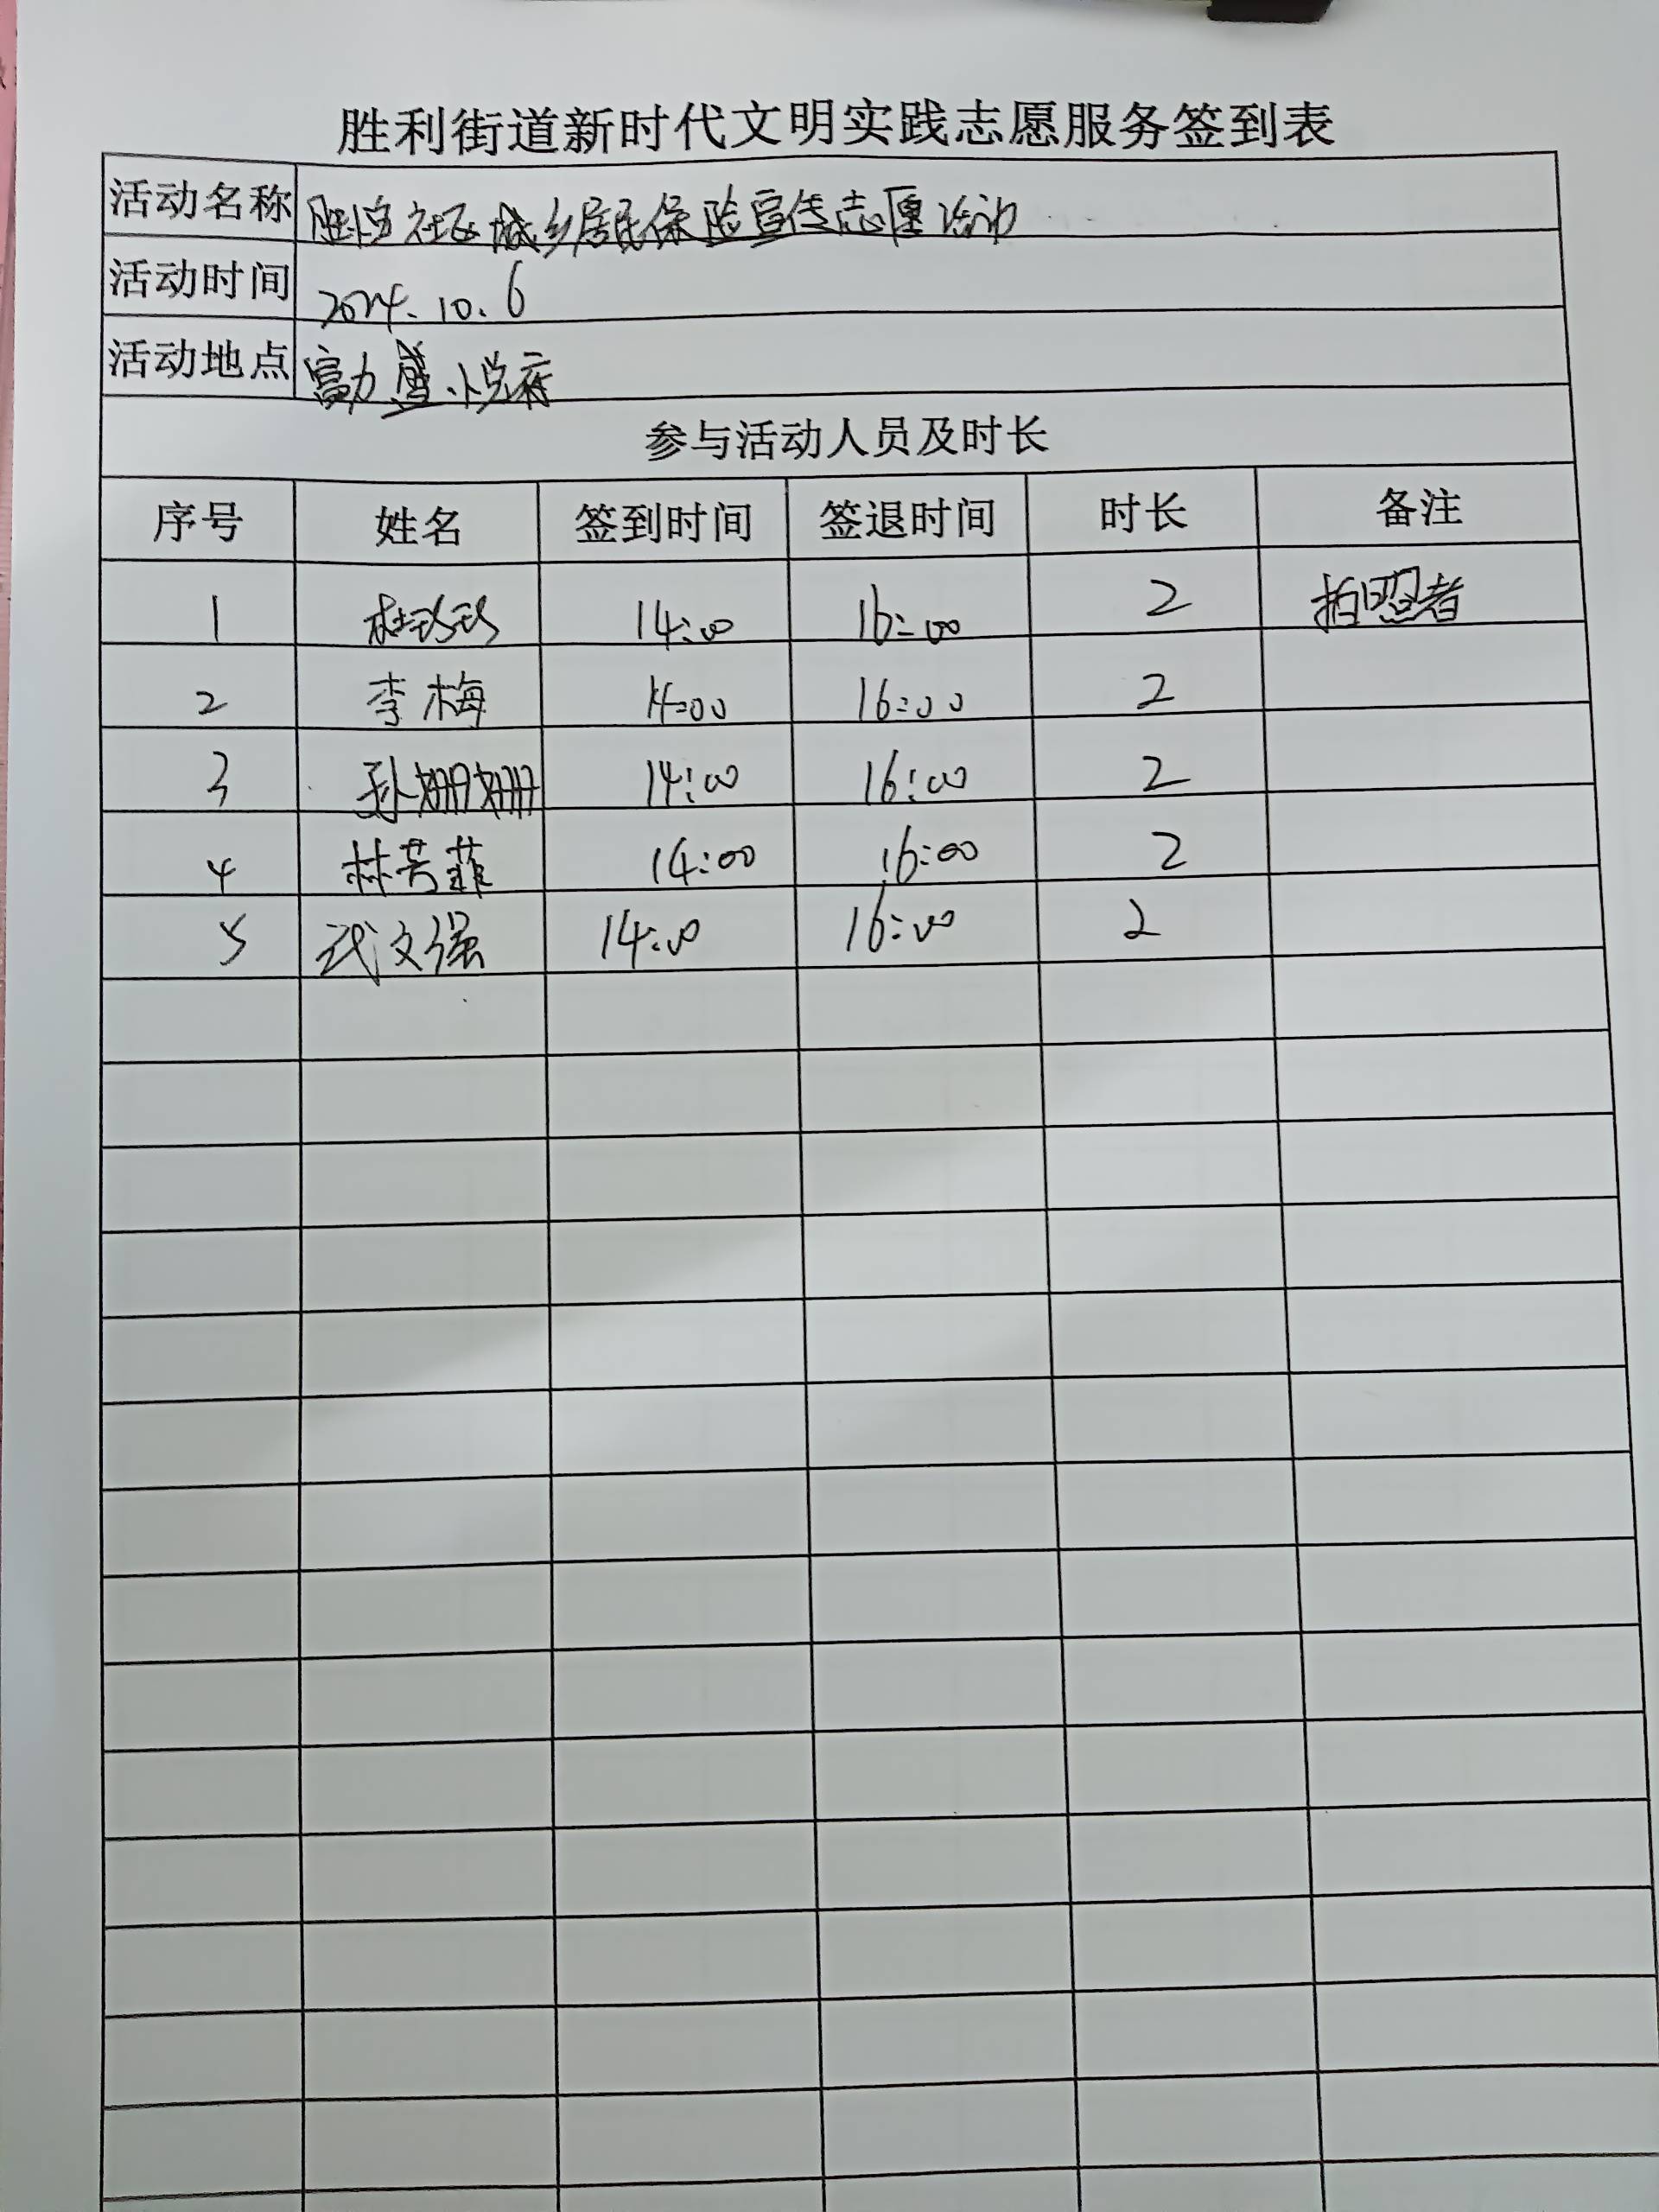 胜利街道新时代文明实践志愿服务签到表
活动名称 社区城乡居民保险宣传志愿活动
活动时间 2024.10.6
活动地点 富力盛悦府
参与活动人员及时长
序号 姓名 签到时间 签退时间 时长 备注
1 14:00 16:00 2 拍照者
2 李梅 14:00 16:00 2
3 孙姗姗 14:00 16:00 2
4 林芳菲 14:00 16:00 2
5 武文强 14:00 16:00 2